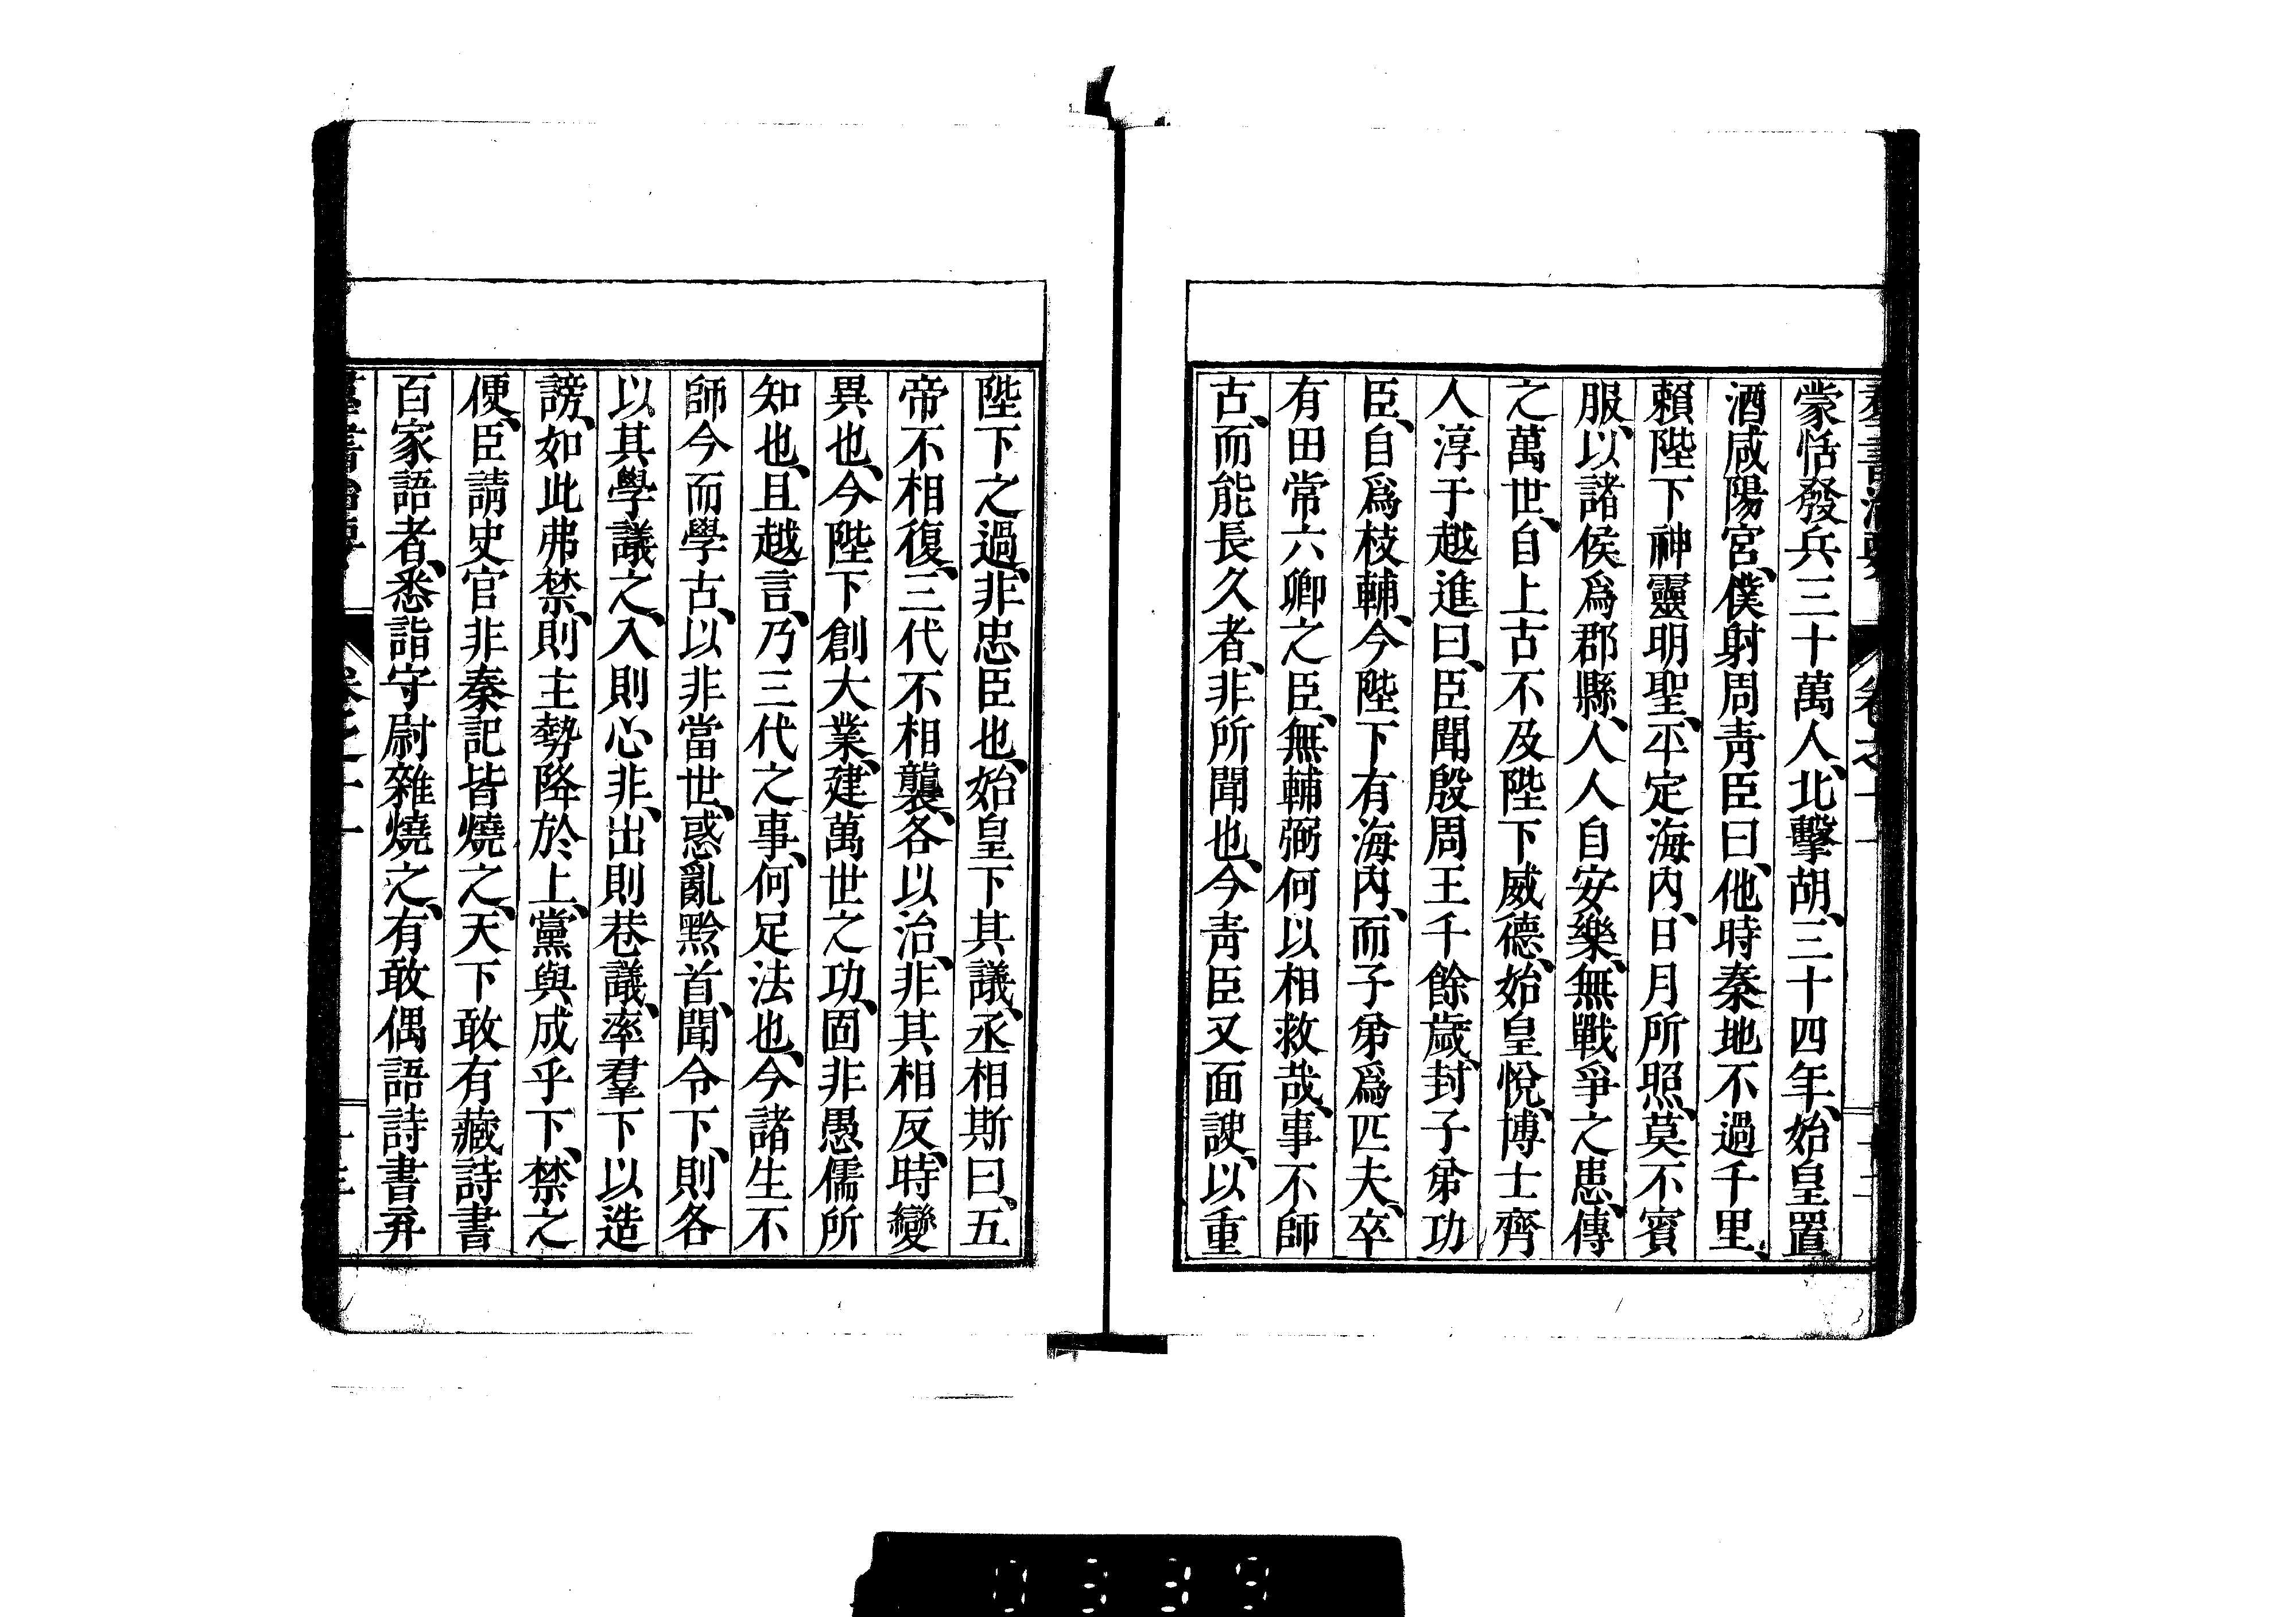 蒙恬發兵三十萬人、北擊胡、三十四年、始皇置
酒咸陽宮、僕射周青臣曰、他時秦地不過千里、
賴陛下神靈明聖、平定海內、日月所照、莫不賓
服、以諸侯爲郡縣、人人自安樂、無戰爭之患、傳
之萬世、自上古不及陛下威德、始皇悅、博士齊
人淳于越進曰、臣聞殷周王千餘歲、封子弟功
臣、自爲枝輔、今陛下有海內、而子弟爲匹夫、卒
有田常六卿之臣、無輔弼何以相救哉、事不師
古、而能長久者、非所聞也、今青臣又面諛、以重
陛下之過、非忠臣也、始皇下其議、丞相斯曰、五
帝不相復、三代不相襲、各以治、非其相反、時變
異也、今陛下創大業、建萬世之功、固非愚儒所
知也、且越言、乃三代之事、何足法也、今諸生不
師今而學古、以非當世、惑亂黔首、聞令下、則各
以其學議之、入則心非、出則巷議、率羣下以造
謗、如此弗禁、則主勢降於上、黨與成乎下、禁之
便、臣請史官非秦記皆燒之、天下敢有藏詩書
百家語者、悉詣守尉雜燒之、有敢偶語詩書弃
卷之十一